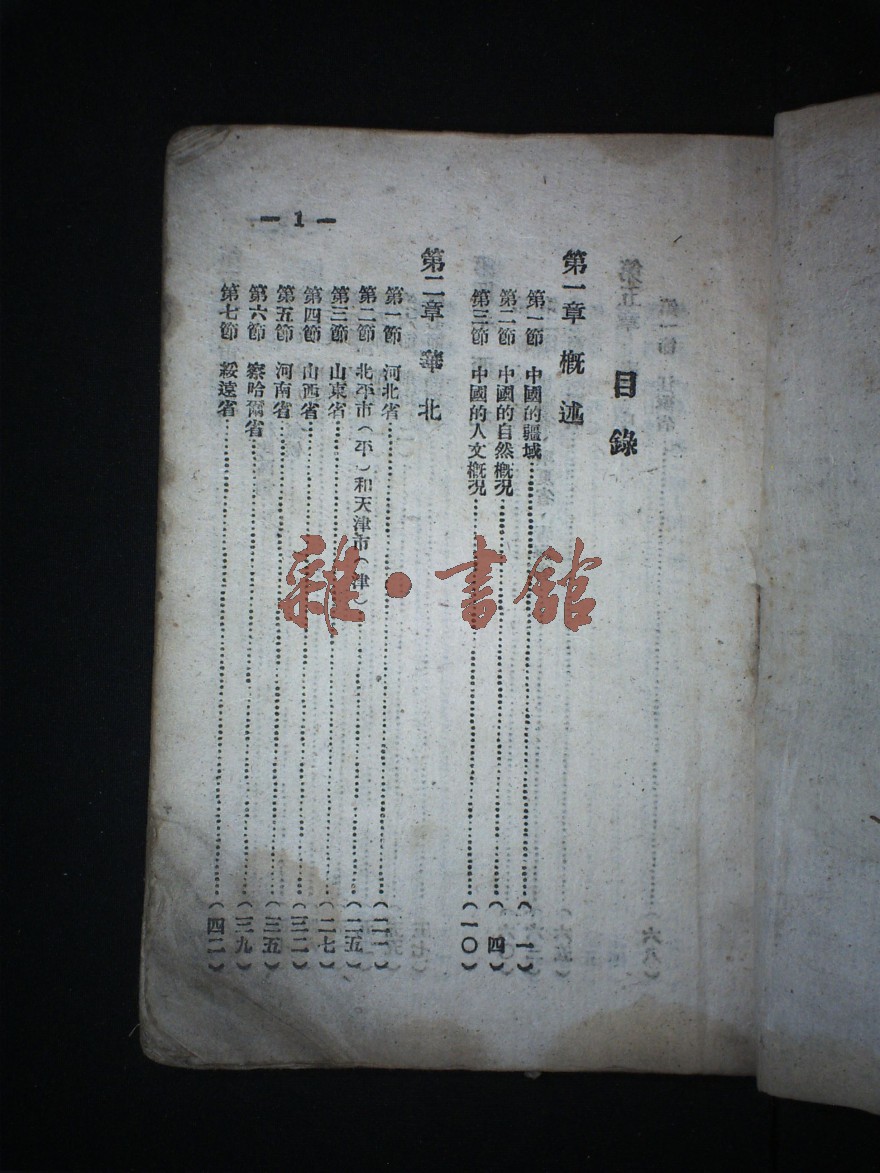 — 1 —
目錄
第一章 概述
第一節 中國的疆域……（一）
第二節 中國的自然概況……（四）
第三節 中國的人文概況……（一〇）
第二章 華北
第一節 河北省……（二一）
第二節 北平市（平）和天津市（津）……（二五）
第三節 山東省……（二七）
第四節 山西省……（三二）
第五節 河南省……（三五）
第六節 察哈爾省……（三九）
第七節 綏遠省……（四二）
雜·書館